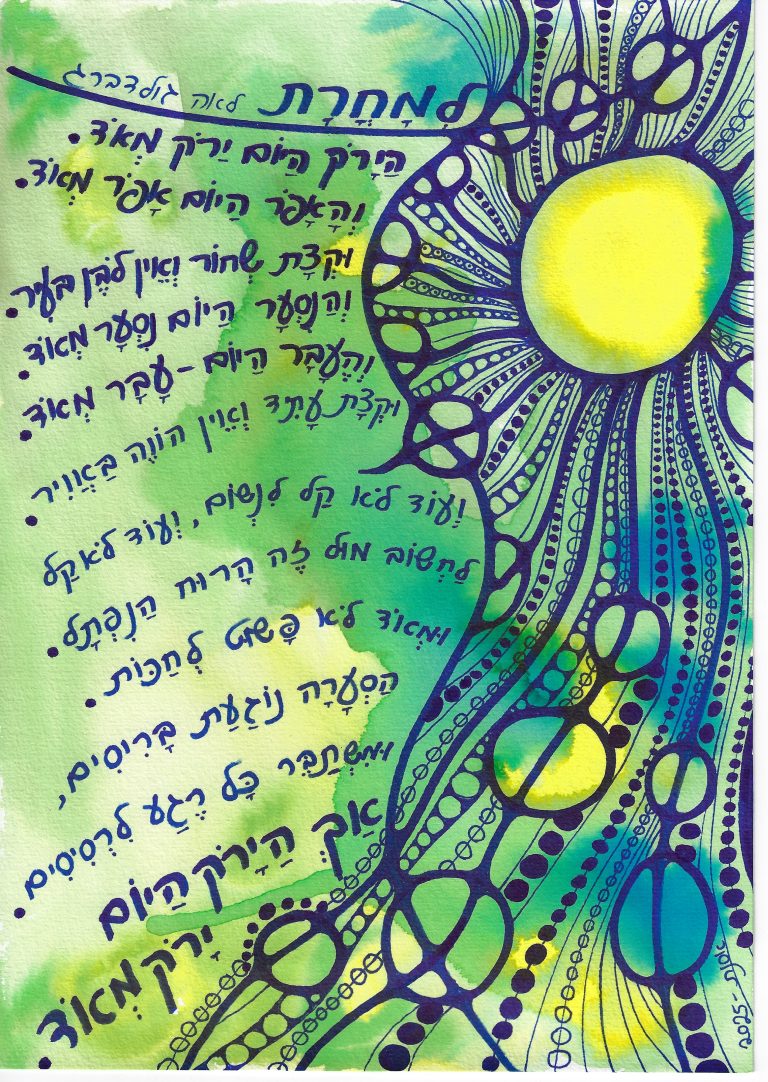 לְמָחֳרָת לאה גולדברג
הַיָּרֹק הַיּוֹם יָרֹק מְאֹד.
וְהָאָפֹר הַיּוֹם אָפֹר מְאוֹד.
וּקְצָת שָׁחוֹר וְאֵין לֹבֶן בָּעִיר.
וְהַנִּסְעָר הַיּוֹם נִסְעָר מְאוֹד.
וְהֶעָבָר הַיּוֹם - עָבָר מְאֹד.
וּקְצָת עָתִיד וְאֵין הוֹוֶה בַּאֲוִיר.
וְעוֹד לֹא קַל לִנְשׁוֹם, וְעוֹד לֹא קַל
לַחְשׁוֹב מוּל זֶה הָרוּחַ הַנִּפְתָּל.
וּמְאוֹד לֹא פָּשׁוּט לְחַכּוֹת.
הַסְּעָרָה נוֹגַעַת בָּרִיסִים,
וּמִשְׁתַּבֵּר כָּל רֶגַע לִרְסִיסִים.
אַךְ הַיָּרֹק הַיּוֹם
יָרֹק מְאוֹד.
2025